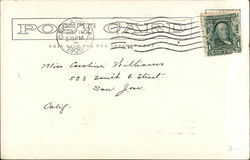 POST CARD
1906
THIS SIDE FOR THE ADDRESS
Miss Caroline Williams
883 South 6 Street
San Jose.
Calif.